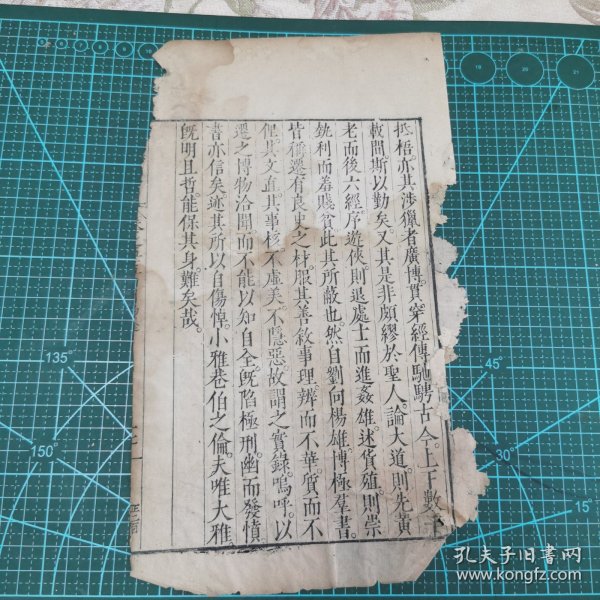 抵梧。亦其涉獵者廣博。貫穿經傳。馳騁古今。上下數千
載間。斯以勤矣。又其是非頗繆於聖人。論大道。則先黃
老而後六經。序遊俠。則退處士而進姦雄。述貨殖。則崇
埶利而羞賤貧。此其所蔽也。然自劉向楊雄博極羣書。
皆稱遷有良史之材。服其善敘事理。辨而不華。質而不
俚。其文直。其事核。不虛美。不隱惡。故謂之實錄。嗚呼。以
遷之博物洽聞。而不能以知自全。旣陷極刑。幽而發憤
書亦信矣。迹其所以自傷悼。小雅巷伯之倫。夫唯大雅
旣明且哲。能保其身。難矣哉。
135°
150°
45°
30°
15°
19
20
21
孔夫子旧书网
www.kongfz.com